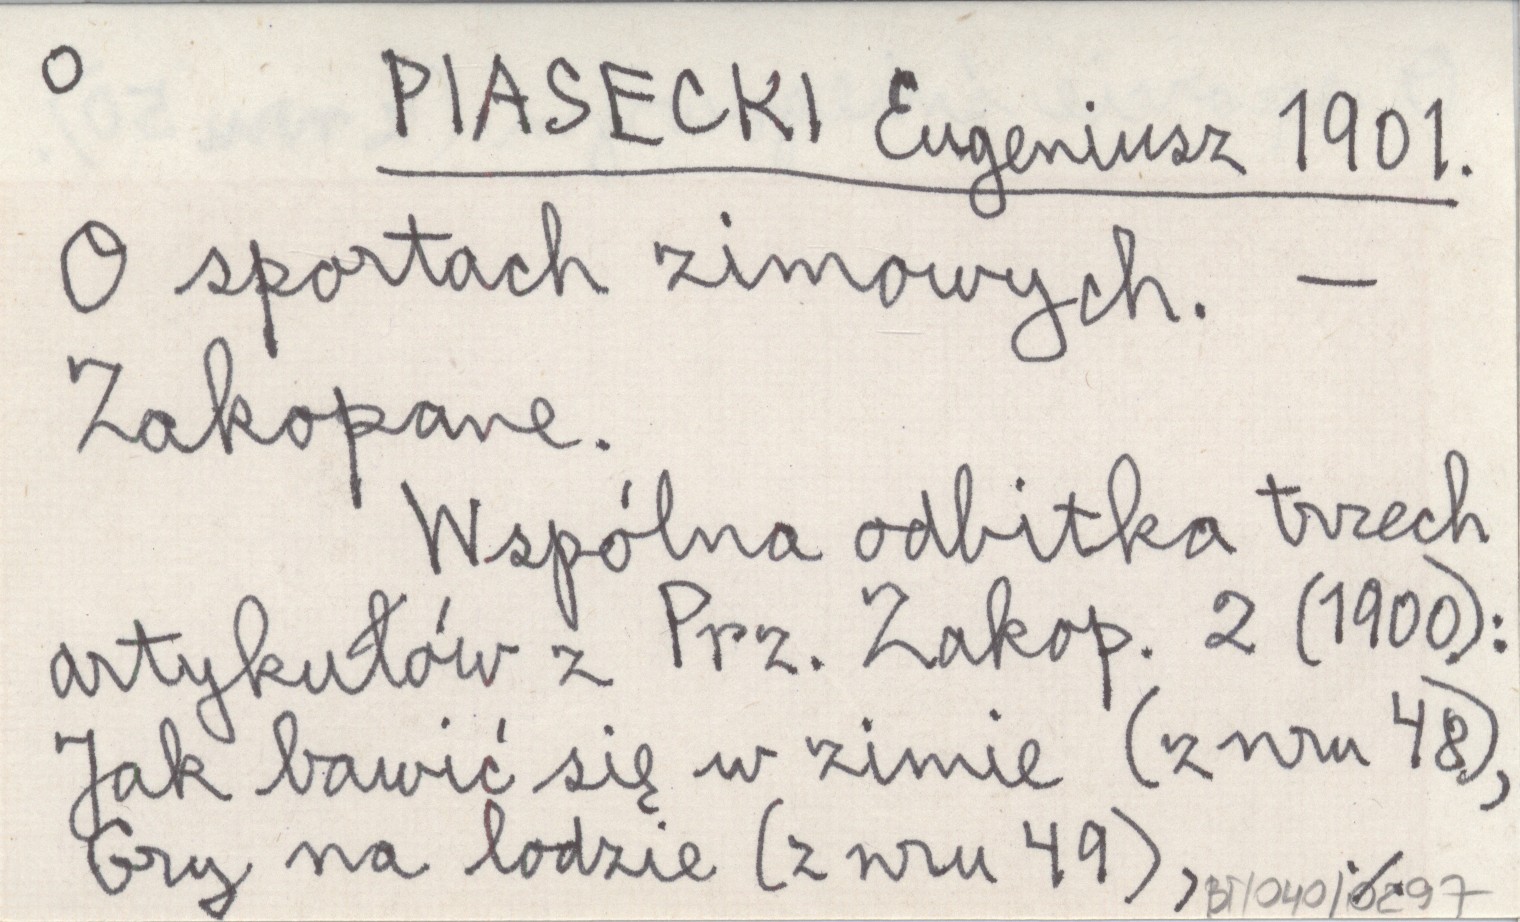 o PIASECKI Eugeniusz 1901.
O sportach zimowych. —
Zakopane.
Wspólna odbitka trzech
artykułów z Prz. Zakop. 2 (1900):
Jak bawić się w zimie (z nru 48),
Gry na lodzie (z nru 49),